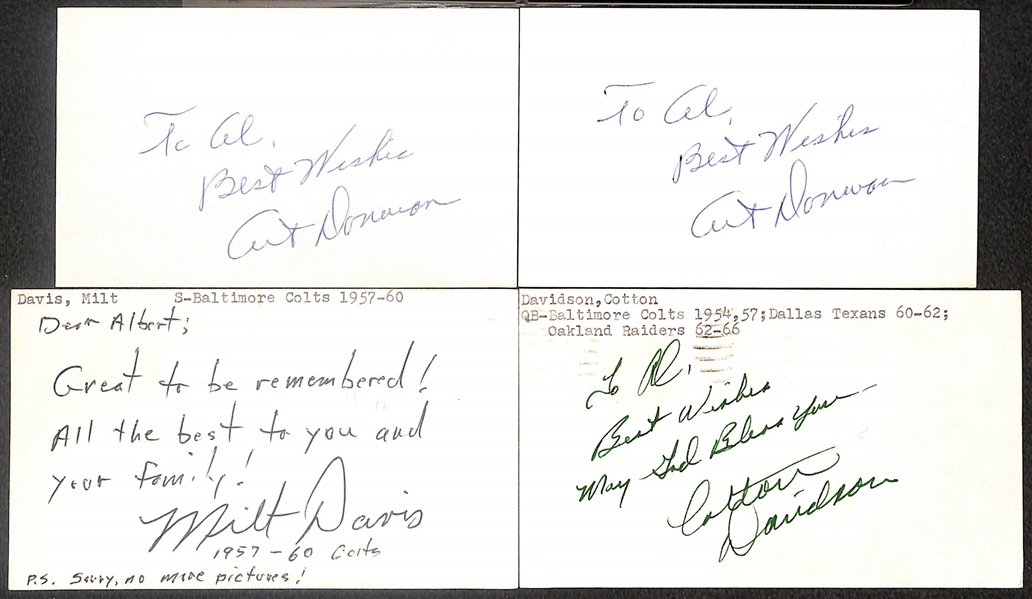 To Al,
Best Wishes
Art Donovan
To Al,
Best Wishes
Art Donovan
Davis, Milt S-Baltimore Colts 1957-60
Dear Albert;
Great to be remembered!
All the best to you and
your family!
Milt Davis
1957-60 Colts
P.S. Sorry, no more pictures!
Davidson,Cotton
QB-Baltimore Colts 1954,57;Dallas Texans 60-62;
Oakland Raiders 62-66
To Al,
Best Wishes
May God Bless You
Cotton
Davidson